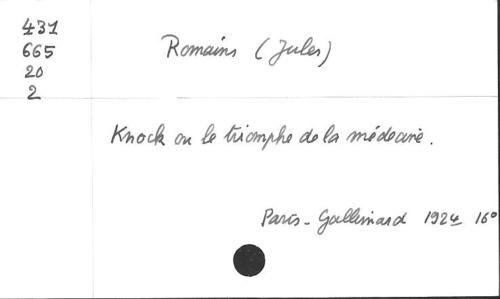 431
665
20
2
Romains (Jules)
Knock ou le triomphe de la médecine.
Paris - Gallimard 1924 16°